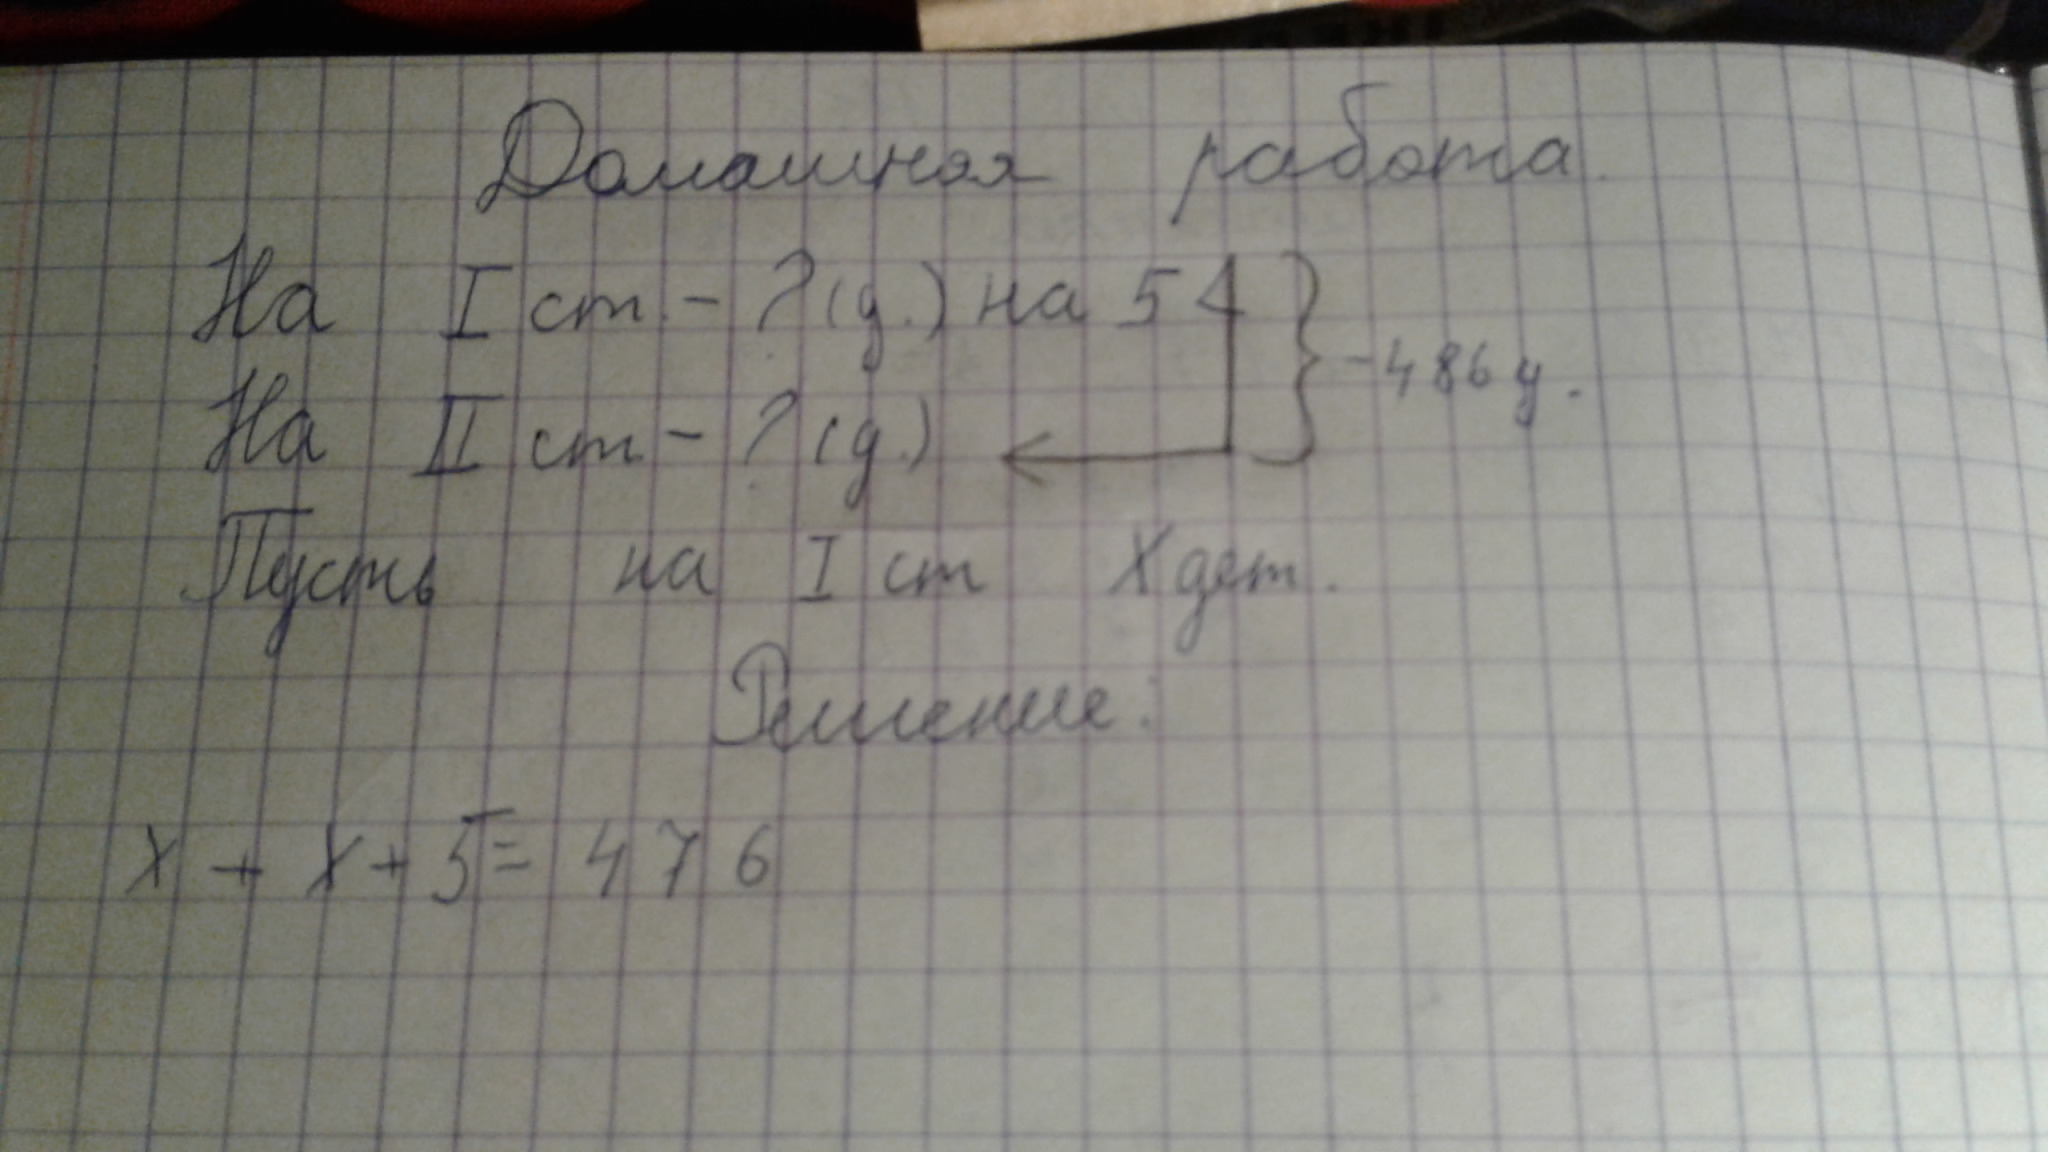 Домашняя работа.
На I ст. - ? (д.) на 5 <
На II ст - ? (д.)
- 486 д.
Пусть на I ст X дет.
Решение:
X + X + 5 = 476